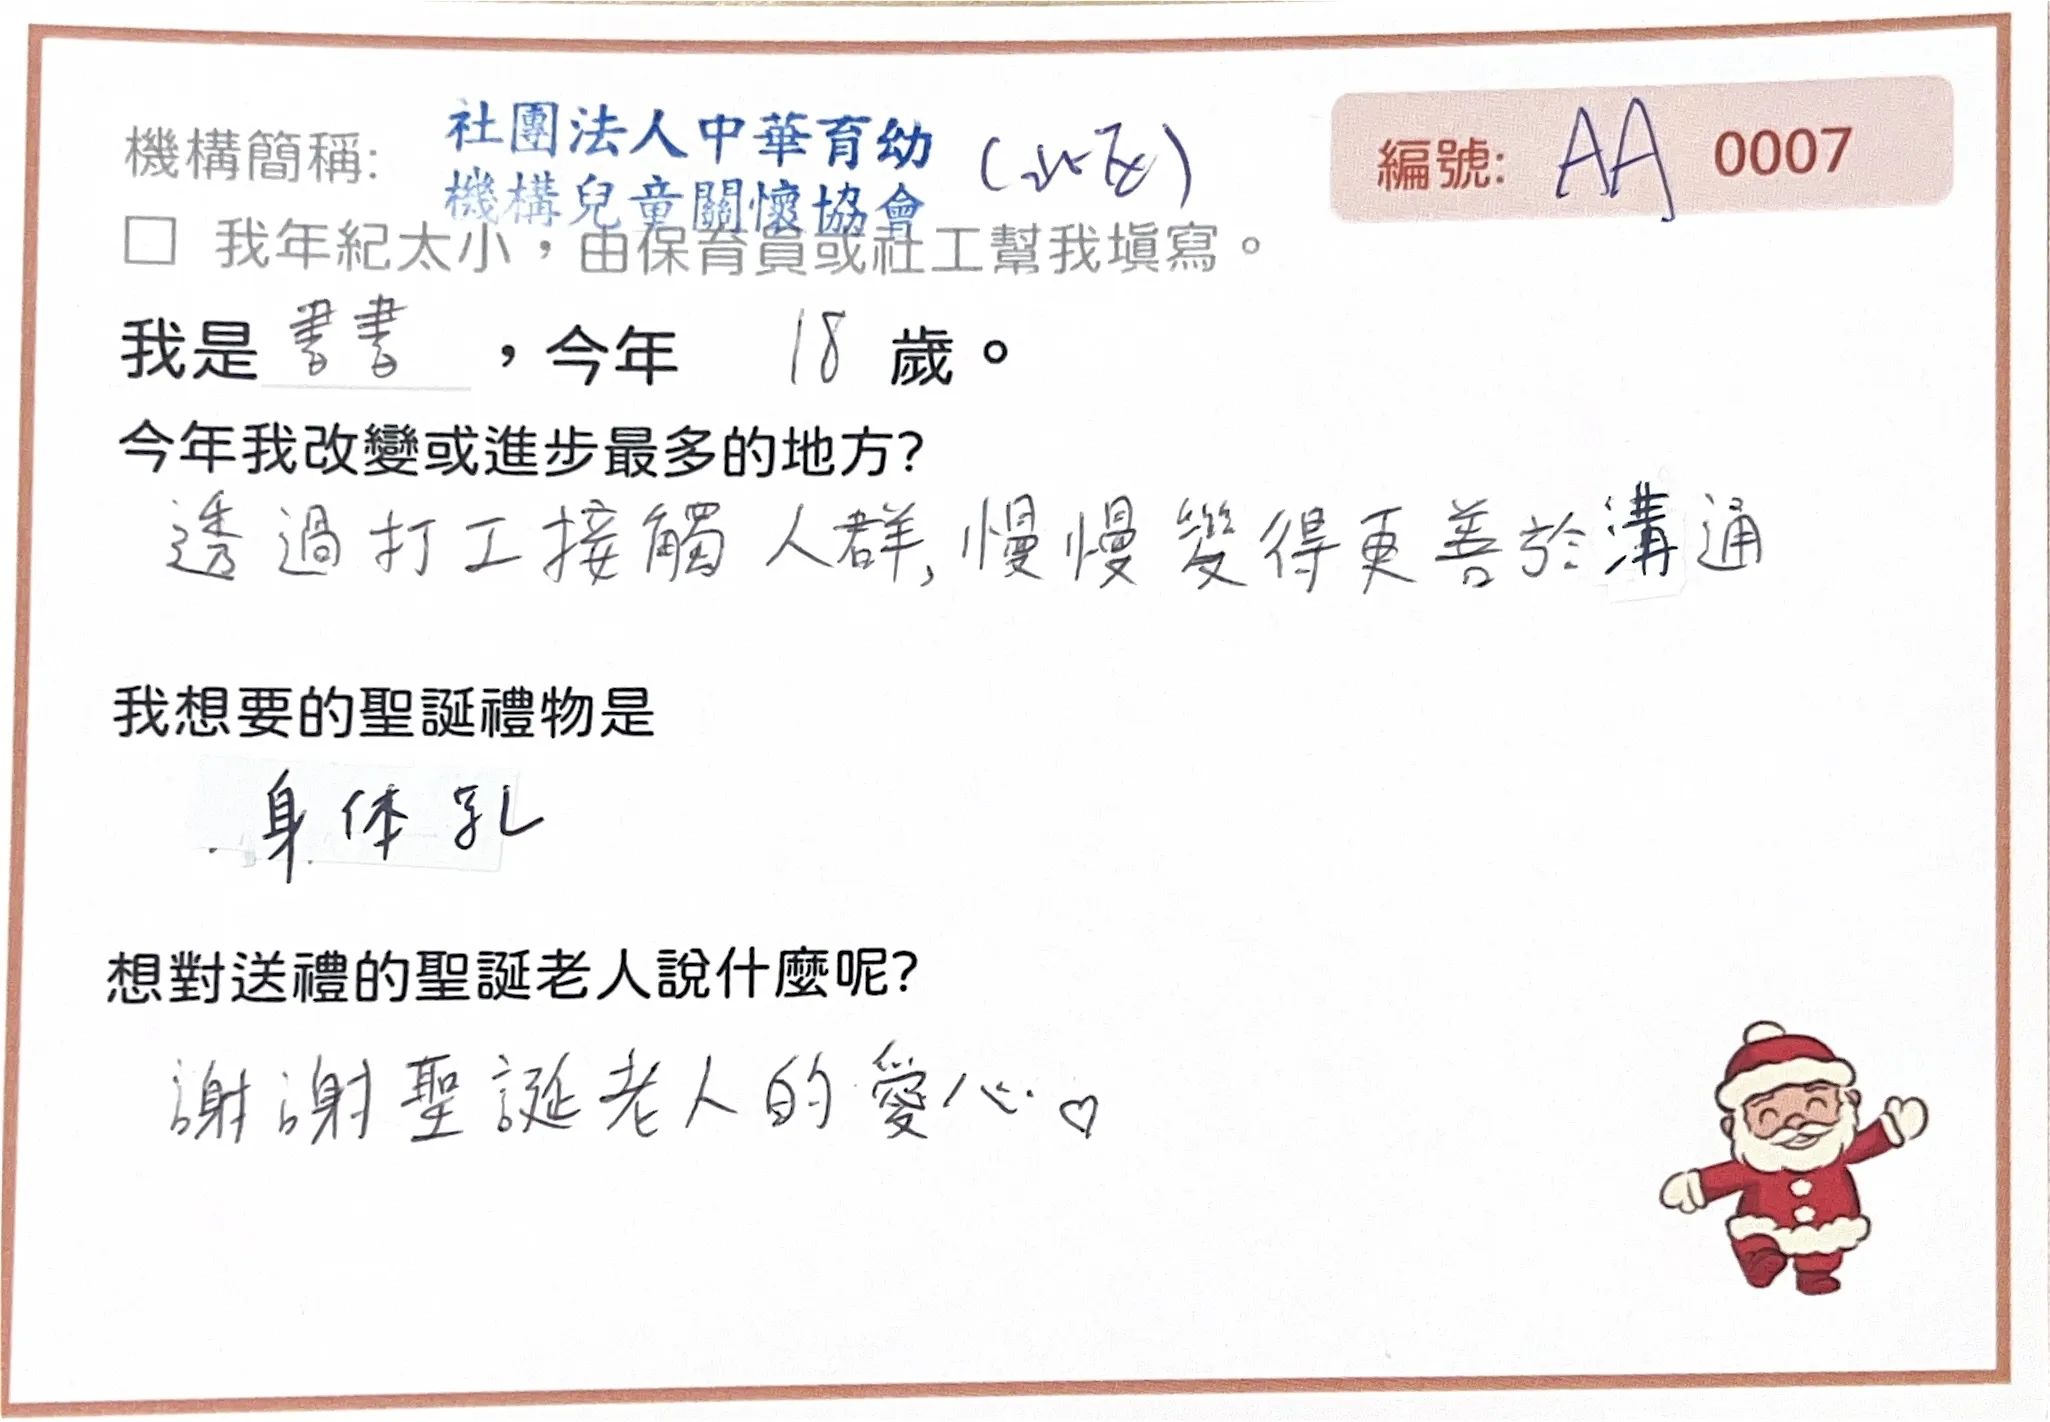 機構簡稱: 社團法人中華育幼
機構兒童關懷協會
編號: AA 0007
□ 我年紀太小，由保育員或社工幫我填寫。
我是 書書 ，今年 18 歲。
今年我改變或進步最多的地方?
透過打工接觸人群,慢慢變得更善於溝通
我想要的聖誕禮物是
身体乳
想對送禮的聖誕老人說什麼呢?
謝謝聖誕老人的愛心♡